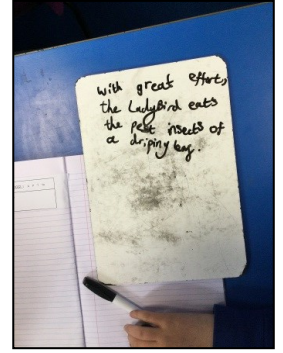 with great effort,
the LadyBird eats
the pest insects of
a driping